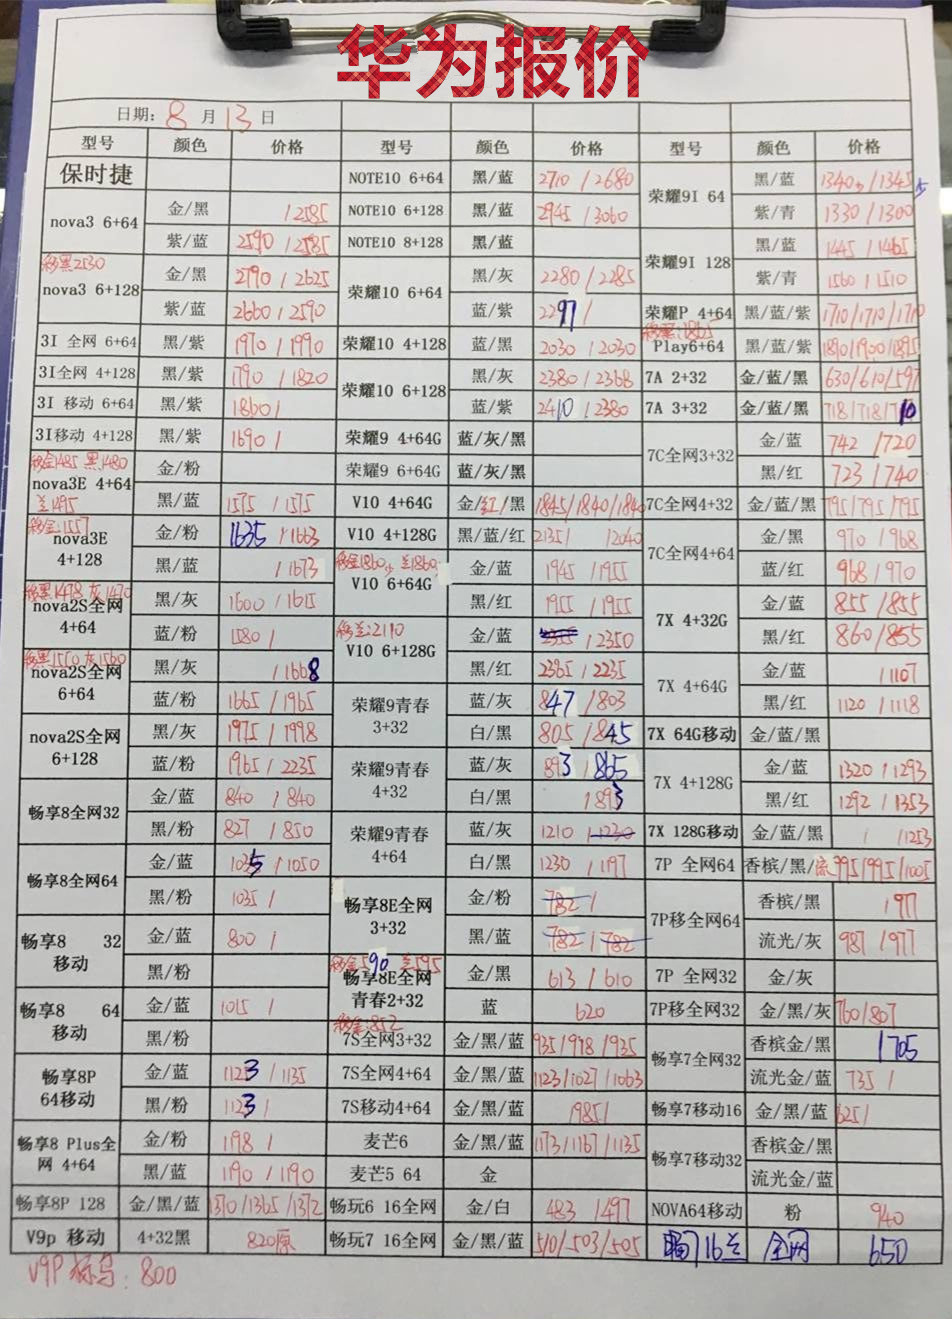 华为报价
日期: 8 月 13 日
型号 颜色 价格 型号 颜色 价格 型号 颜色 价格
保时捷
nova3 6+64 金/黑 /2585
紫/蓝 2590 /2585
移黑2530
nova3 6+128 金/黑 2790 / 2625
紫/蓝 2660 / 2590
3I 全网 6+64 黑/紫 1970 / 1990
3I全网 4+128 黑/紫 1790 / 1820
3I 移动 6+64 黑/紫 1860 /
3I移动 4+128 黑/紫 1690 /
移金1485 黑1480
nova3E 4+64 金/粉
兰1495 黑/蓝 1575 / 1575
移金:1557
nova3E 4+128 金/粉 1635 / 1663
黑/蓝 / 1673
移黑1478 灰1470
nova2S全网 4+64 黑/灰 1600 / 1615
蓝/粉 1580 /
移黑1550 灰1560
nova2S全网 6+64 黑/灰 / 1668
蓝/粉 1665 / 1965
nova2S全网 6+128 黑/灰 1975 / 1998
蓝/粉 1965 / 2235
畅享8全网32 金/蓝 840 / 840
黑/粉 827 / 850
畅享8全网64 金/蓝 1035 / 1050
黑/粉 1035 /
畅享8 32 移动 金/蓝 800 /
黑/粉
畅享8 64 移动 金/蓝 1015 /
黑/粉
畅享8P 64移动 金/蓝 1123 / 1135
黑/粉 1123 /
畅享8 Plus全网 4+64 金/粉 1198 /
黑/蓝 1190 / 1190
畅享8P 128 金/黑/蓝 1370 /1365 /1372
V9p 移动 4+32黑 820原
V9P 标与: 800
NOTE10 6+64 黑/蓝 2710 / 2680
NOTE10 6+128 黑/蓝 2945 / 3060
NOTE10 8+128 黑/蓝
荣耀10 6+64 黑/灰 2280 / 2285
蓝/紫 2297 /
荣耀10 4+128 蓝/黑 2030 / 2030
荣耀10 6+128 黑/灰 2380 / 2368
蓝/紫 2410 / 2380
荣耀9 4+64G 蓝/灰/黑
荣耀9 6+64G 蓝/灰/黑
V10 4+64G 金/红/黑 1845/1840/1840
V10 4+128G 黑/蓝/红 2135 / /2040
移金1860 兰1860
V10 6+64G 金/蓝 1945 / 1955
黑/红 1955 / 1955
移兰:2110
V10 6+128G 金/蓝 2355 / 2350
黑/红 2365 / 2235
荣耀9青春 3+32 蓝/灰 847 /803
白/黑 805 / 845
荣耀9青春 4+32 蓝/灰 893 / 865
白/黑 / 893
荣耀9青春 4+64 蓝/灰 1210 / 1230
白/黑 1230 / 1197
畅享8E全网 3+32 金/粉 782 /
黑/蓝 782 / 782
移金590 兰595
畅享8E全网 青春2+32 金/黑 613 / 610
蓝 620
移金:852
7S全网3+32 金/黑/蓝 935 /948 /935
7S全网4+64 金/黑/蓝 1123/1027 /1063
7S移动4+64 金/黑/蓝 1985 /
麦芒6 金/黑/蓝 1173/1167/1135
麦芒5 64 金
畅玩6 16全网 金/白 483 / 497
畅玩7 16全网 金/黑/蓝 510/503/505
荣耀9I 64 黑/蓝 1340 /1345
紫/青 1330 / 1300
荣耀9I 128 黑/蓝 1445 / 1465
紫/青 1560 / 1510
荣耀P 4+64 黑/蓝/紫 1710/1710/1710
移黑:1865
Play6+64 黑/蓝/紫 1890/1900/1895
7A 2+32 金/蓝/黑 630/610/597
7A 3+32 金/蓝/黑 718/718/710
7C全网3+32 金/蓝 742 /720
黑/红 723 / 740
7C全网4+32 金/黑/蓝 795/795/795
7C全网4+64 金/黑 970 / 968
蓝/红 968 / 970
7X 4+32G 金/蓝 855 /855
黑/红 860 /855
7X 4+64G 金/蓝 / 1107
黑/红 1120 / 1118
7X 64G移动 金/蓝/黑
7X 4+128G 金/蓝 1320 / 1293
黑/红 1292 / 1353
7X 128G移动 金/蓝/黑 / /1253
7P 全网64 香槟/黑/流 995/995/1005
7P移全网64 香槟/黑 / 977
流光/灰 987 / 977
7P 全网32 金/灰
7P移全网32 金/黑/灰 760/807
畅享7全网32 香槟金/黑 / 705
流光金/蓝 735 /
畅享7移动16 金/黑/蓝 625 /
畅享7移动32 香槟金/黑
流光金/蓝
NOVA64移动 粉 940
畅7 16兰 全网 650